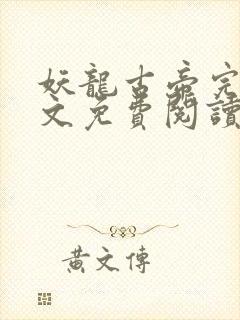 妖龍古帝完
文免費閱讀
黃文傳